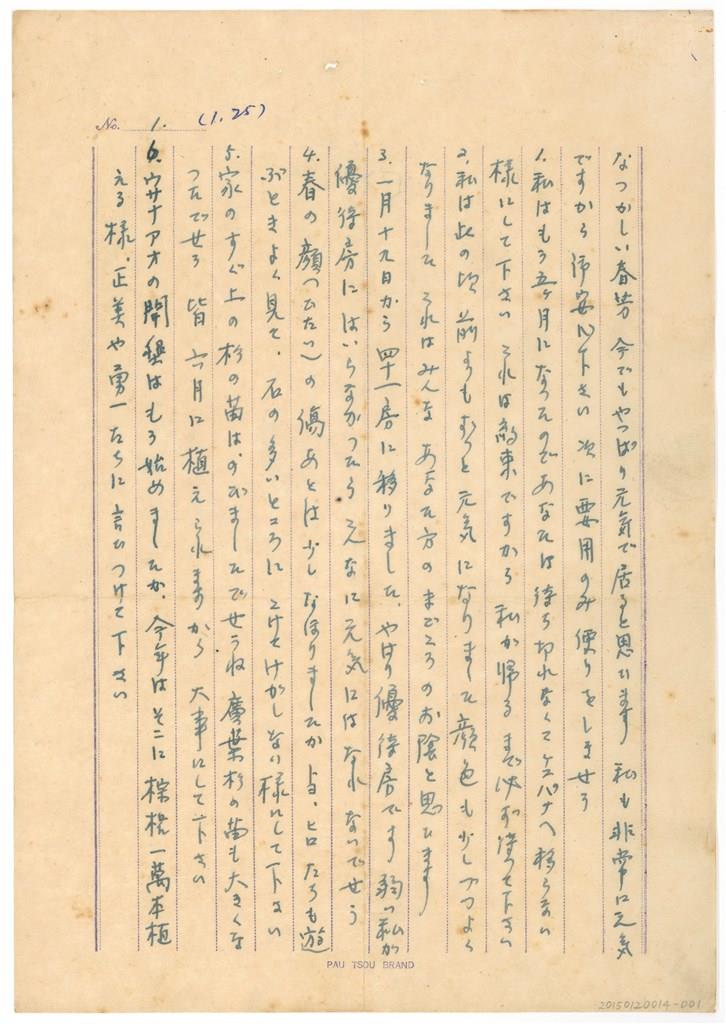 No. 1. (1.25)
なつかしい春芳 今でもやっぱり元気で居ると思ひます 私も非常に元気
ですから 御安心下さい 次に要用のみ便りをしませう
1. 私はもう五ヶ月になったのであなたは待ち切れなくてケスパナへ移らない
様にして下さい これは約束ですから 私が帰るまで必ず待って下さい
2. 私は此の頃 前よりもずっと元気になりました 顔色も少しづつよく
なりました これはみんな あなた方のまごころのお陰と思ひます
3. 一月十九日から 四十一房に移りました、やはり優待房です 弱い私が
優待房にはいらなかったら こんなに元気にはなれないでせう
4. 春の顔(ひたい)の傷あとは少しなほりましたか トヨ、ヒロたちも遊
ぶときよく見て、石の多いところに こけてけがしない様にして下さい
5. 家のすぐ上の杉の苗は、のびましたでせうね 廣葉杉の苗も大きくな
ったでせう 皆 六月に植えられますから 大事にして下さい
6. ウサナアオの開墾はもう始めましたか、今年はそこに棕梠一萬本植
える様、正美や勇一たちに言ひつけて下さい
PAU TSOU BRAND
20150120014-001